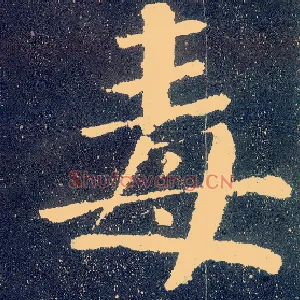 毒
Shufawang.CN